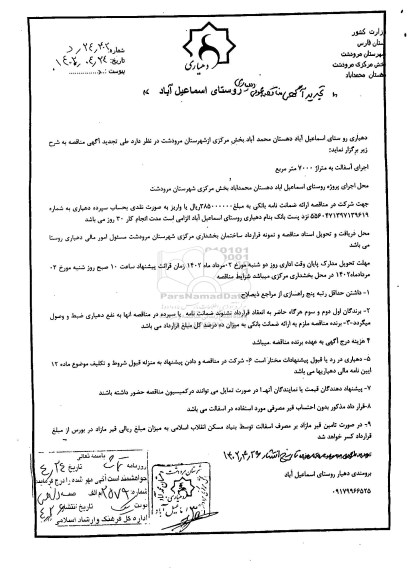 وزارت کشور
استان فارس
شهرستان مرودشت
بخش مرکزی مرودشت
دهستان محمدآباد
دهیاری
شماره
تاریخ
پیوست
تجدید آگهی مناقصه عمومی دهیاری روستای اسماعیل آباد
دهیاری رو ستای اسماعیل آباد دهستان محمد آباد بخش مرکزی ازشهرستان مرودشت در نظر دارد طی تجدید آگهی مناقصه به شرح
زیر برگزار نماید؛
اجرای آسفالت به متراژ ۷۰۰۰ متر مربع
محل اجرای پروژه روستای اسماعیل اباد دهستان محمداباد بخش مرکزی شهرستان مرودشت
جهت شرکت در مناقصه ارائه ضمانت نامه بانکی به مبلغ ۸۵۰۰۰۰۰۰۰ریال یا واریز به صورت نقدی بحساب سپرده دهیاری به شماره
۵۵۶۰۴۷۱۳۹۷۱۳۹۶۱۹ نزد پست بانک بنام دهیاری روستای اسماعیل آباد الزامی است مدت انجام کار ۳۰ روز می باشد
محل دریافت و تحویل اسناد مناقصه و نمونه قرارداد ساختمان بخشداری مرکزی شهرستان مرودشت مسئول امور مالی دهیاری روستا
می باشد
مهلت تحویل مدارک پایان وقت اداری روز دو شنبه مورخ ۰۲مرداد ماه ۱۴۰۲ زمان قرائت پیشنهاد ساعت ۱۰ صبح روز شنبه مورخ ۰۲
مردادماه۱۴۰۲ در محل بخشداری مرکزی میباشد شرایط مناقصه
ParsNamadData
۱- داشتن حداقل رتبه پنج راهسازی از مراجع ذیصلاح
۲- برندگان اول دوم و سوم هرگاه حاضر به انعقاد قرارداد نشوند ضمانت نامه یا سپرده در مناقصه انها به نفع دهیاری ضبط و وصول
میگردد-۳- برنده مناقصه ملزم به ارائه ضمانت بانکی به میزان ده درصد کل مبلغ قرارداد می باشد
۴ هزینه درج آگهی به عهده برنده مناقصه .میباشد
۵- دهیاری در رد یا قبول پیشنهادات مختار است ۶- شرکت در مناقصه و دادن پیشنهاد به منزله قبول شروط و تکلیف موضوع ماده ۱۲
ایین نامه مالی دهیاریها می باشد
۷- پیشنهاد دهندگان قیمت یا نمایندگان آنهـا در صورت تمایل می توانند درکمیسیون مناقصه حضور داشته باشند
۸-قرار داد مذکور بدون احتساب قیر مصرفی مورد استفاده در اسفالت می باشد
۹- در صورت تامین قیر مازاد بر مصرف آسفالت توسط بنیاد مسکن انقلاب اسلامی به میزان مبلغ ریالی قیر مازاد در بورس از مبلغ
قرارداد کسر خواهد شد
تاریخ انتشار
برومندی دهیار روستای اسماعیل آباد
۰۹۱۷۹۹۶۶۵۲۵
باسمه تعالی
روزنامه
تاریخ
خواهشمند است آگهی مهر شده را درج فرمایید
شماره ۲۵۷۹ م الف
نوبت
تاریخ انتشار
اداره کل فرهنگ و ارشاد اسلامی